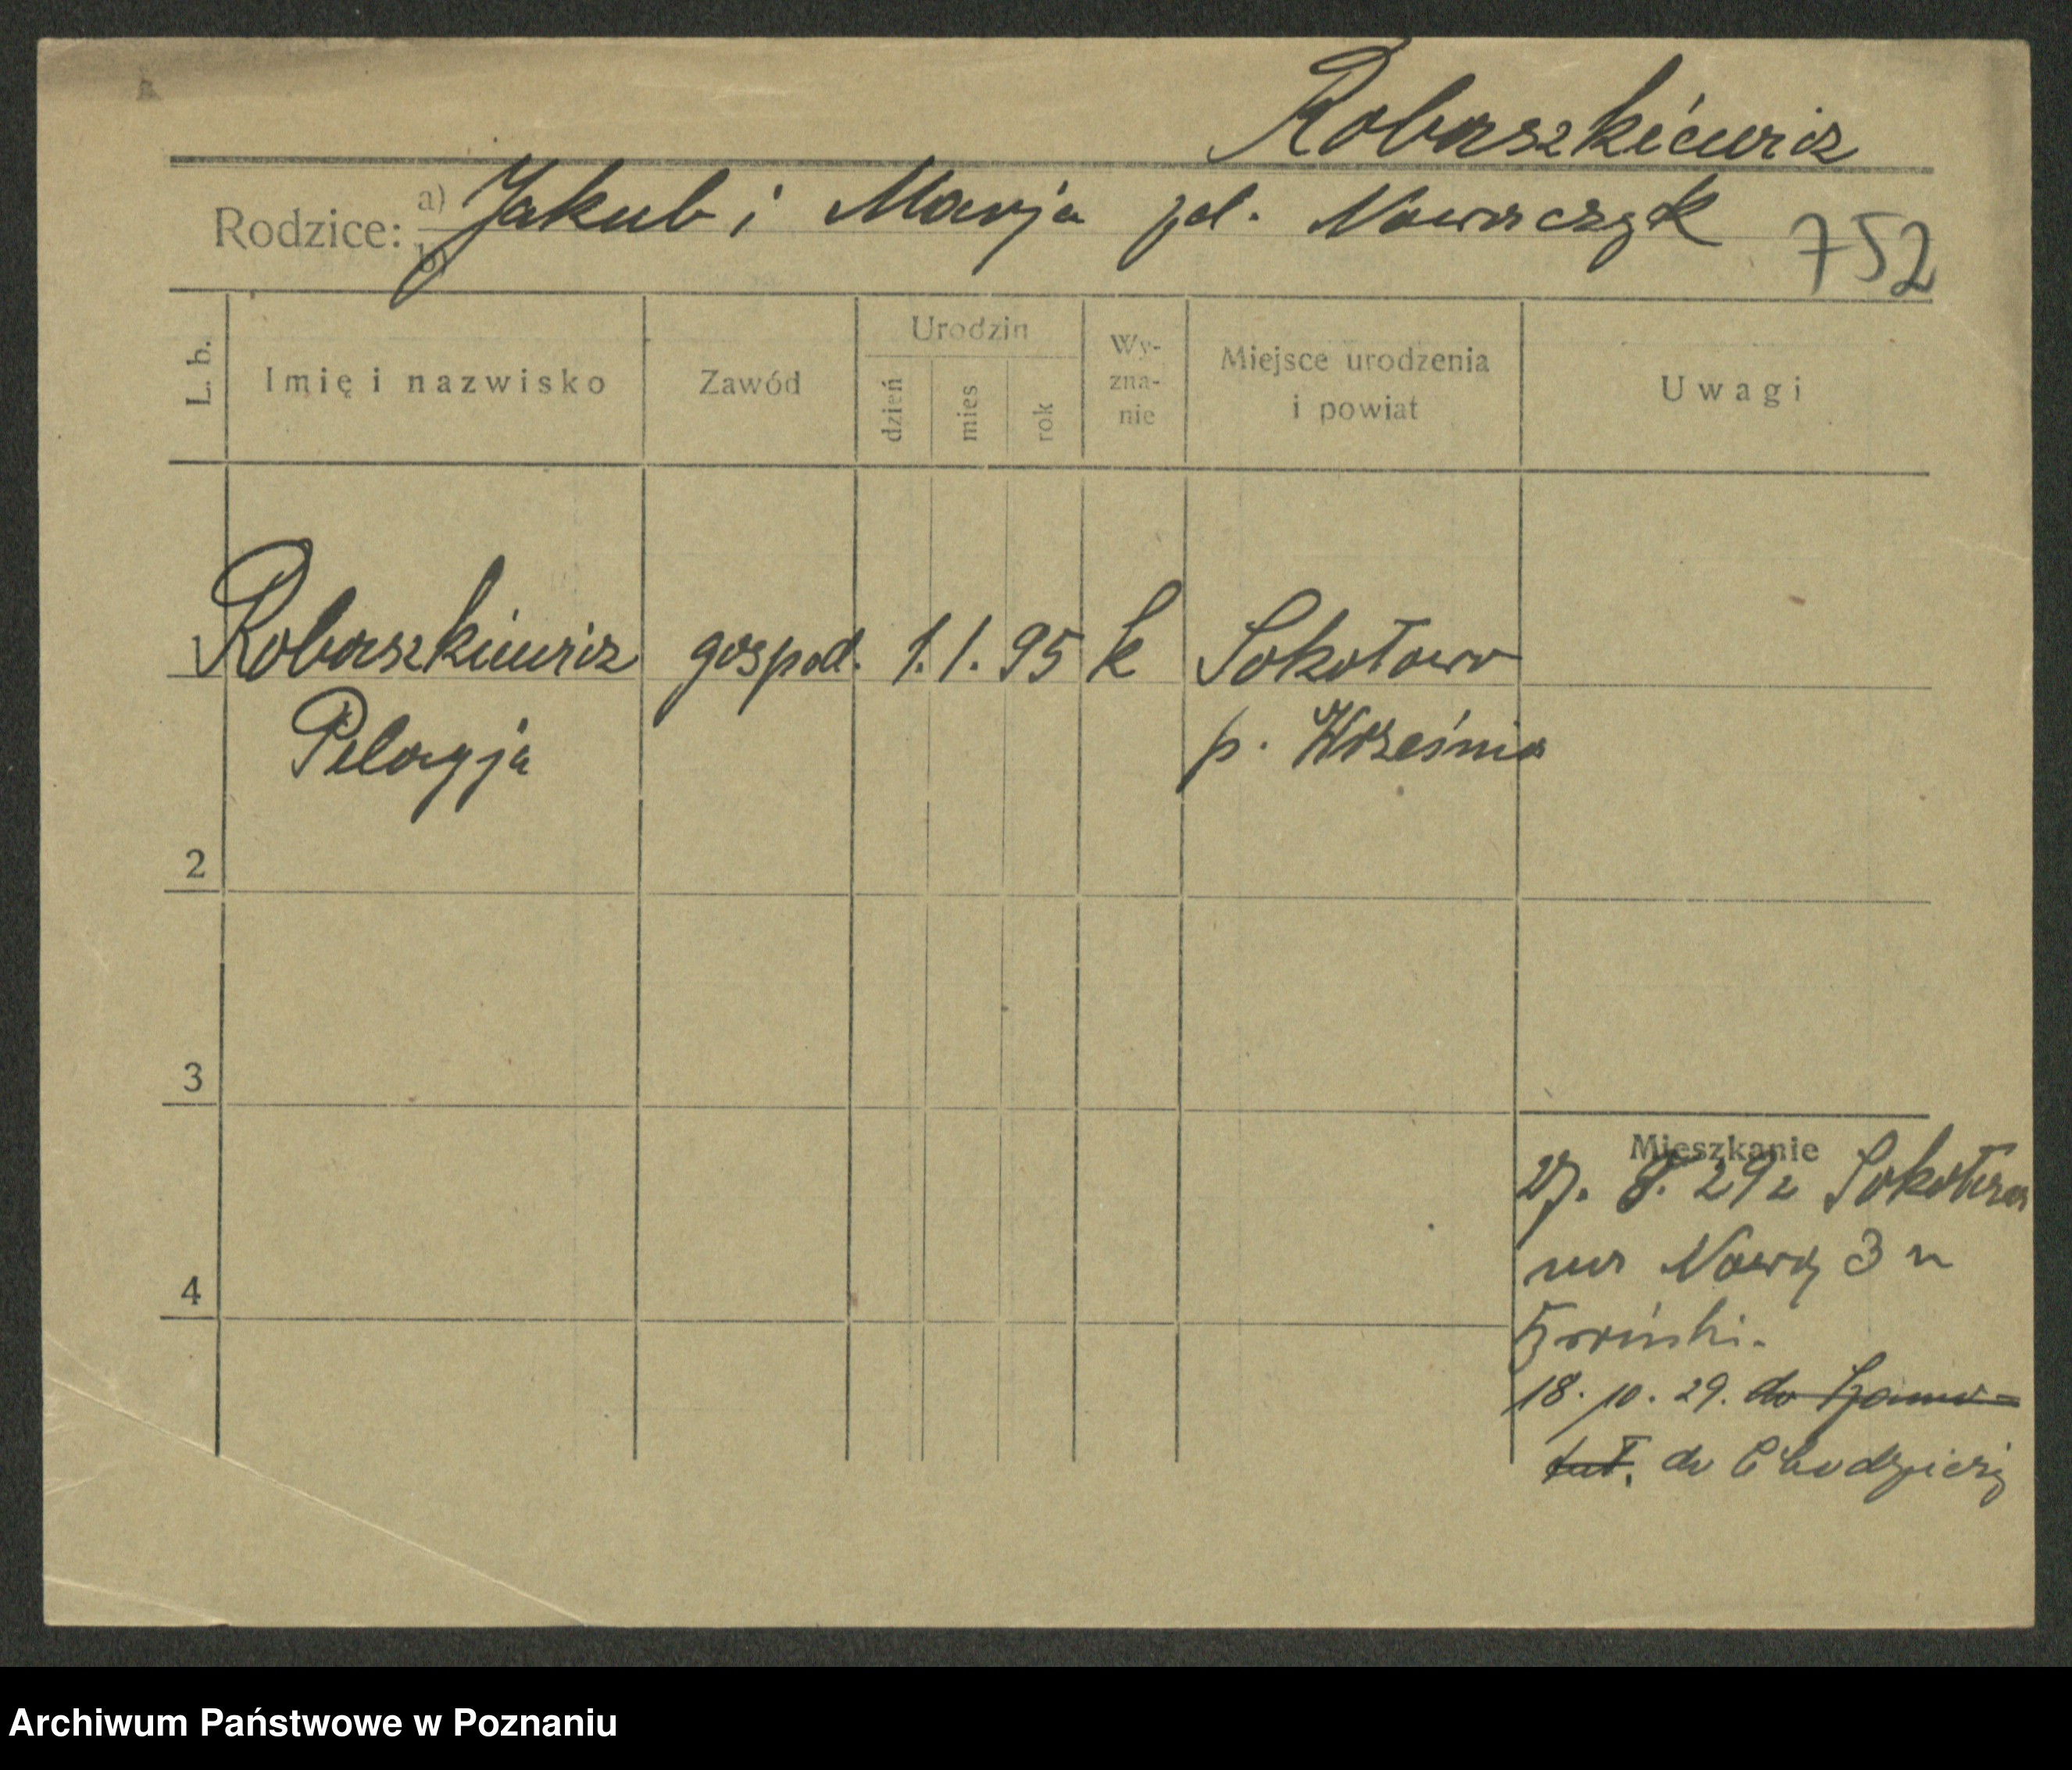 Robaszkiewicz
Rodzice: a) Jakub i Marja pd. Nowaczyk
b)
752
L. b.
Imię i nazwisko
Zawód
Urodzin
dzień
mies
rok
Wy-
zna-
nie
Miejsce urodzenia
i powiat
Uwagi
1 Robaszkiewicz gospod. 1. 1. 95 k Sokołowo
Pelagja p. Września
2
3
4
Mieszkanie
27. 8. 29 z Sokołowa
na Nową 3 u
18. 10. 29. do
do Chodzieży
Archiwum Państwowe w Poznaniu